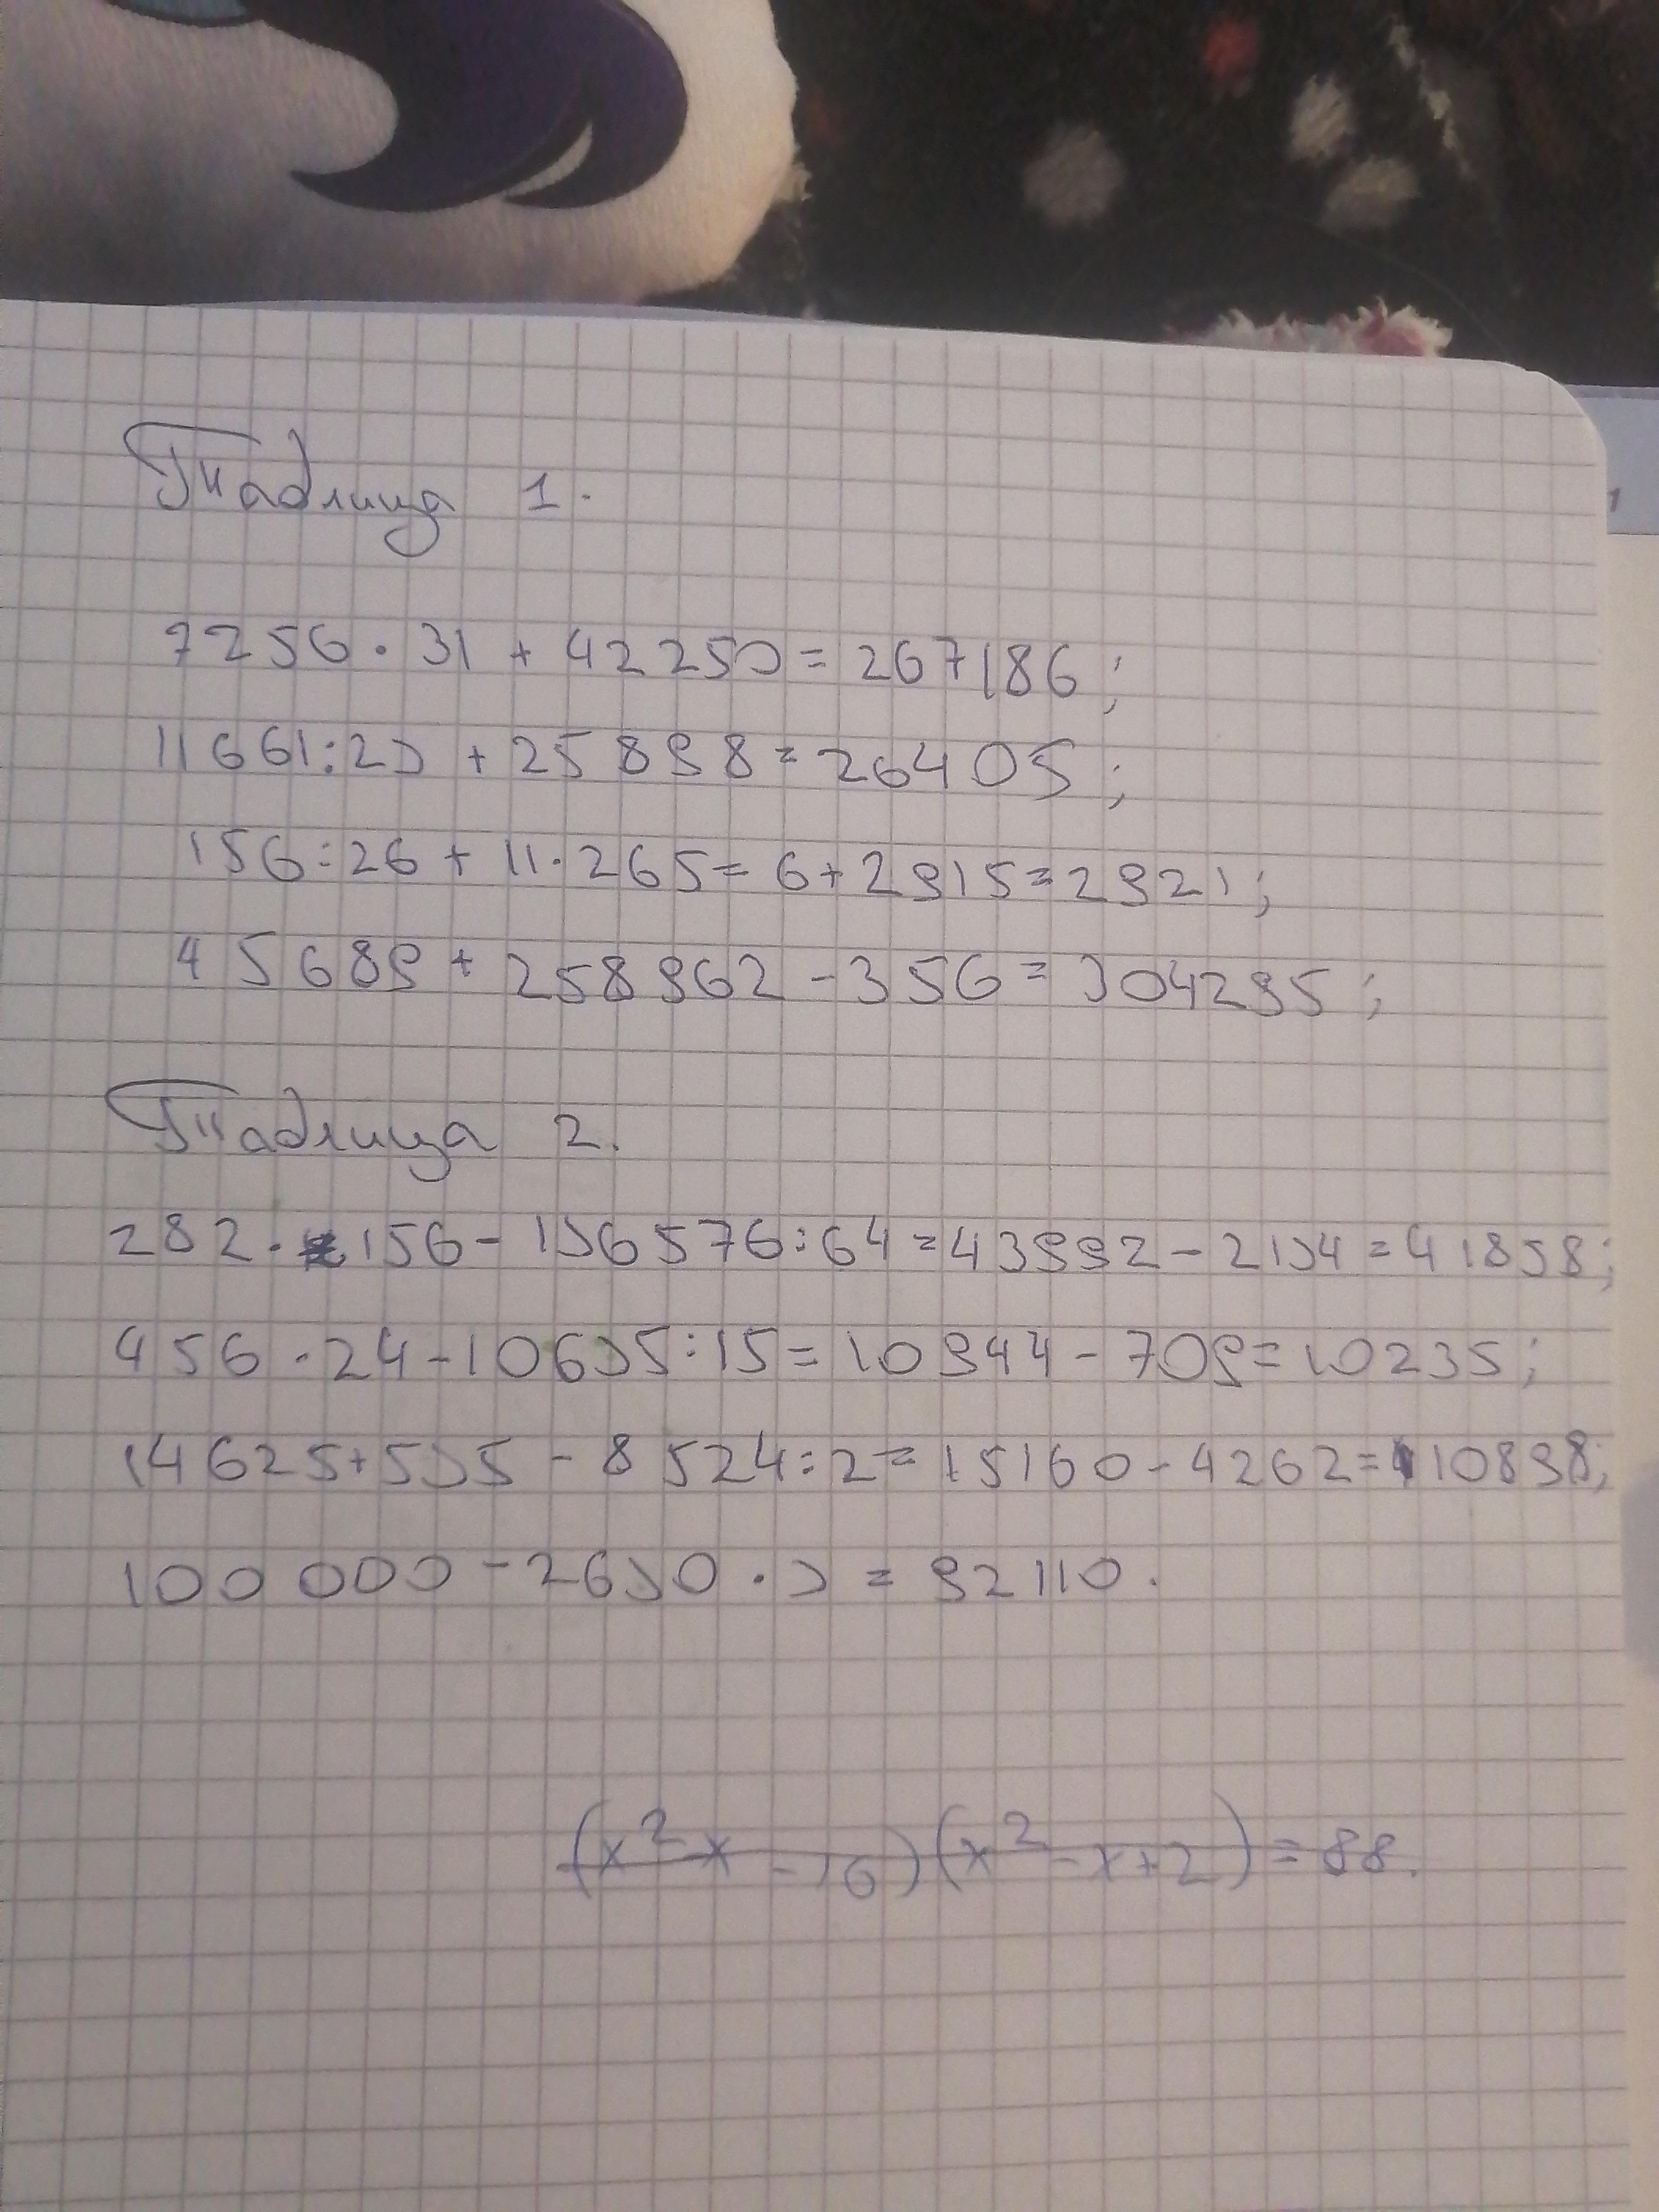 Таблица 1.
7256 · 31 + 42250 = 267186;
11661:23 + 25898 = 26405;
156:26 + 11·265 = 6+2915=2921;
45689 + 258962 - 356 = 304295;
Таблица 2.
282 · 156 - 136576:64 = 43992 - 2134 = 41858;
456 · 24 - 10635:15 = 10944 - 709 = 10235;
14625+535 - 8524:2 = 15160 - 4262 = 10898;
100 000 - 2630 · 3 = 92110.
(x² - x - 16)(x² - x + 2) = 88.